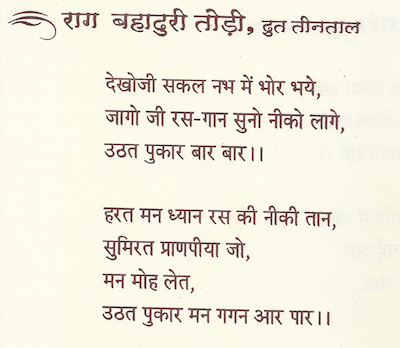 राग बहादुरी तोड़ी, द्रुत तीनताल
देखोजी सकल नभ में भोर भये,
जागो जी रस-गान सुनो नीको लागे,
उठत पुकार बार बार।।
हरत मन ध्यान रस की नीकी तान,
सुमिरत प्राणपीया जो,
मन मोह लेत,
उठत पुकार मन गगन आर पार।।